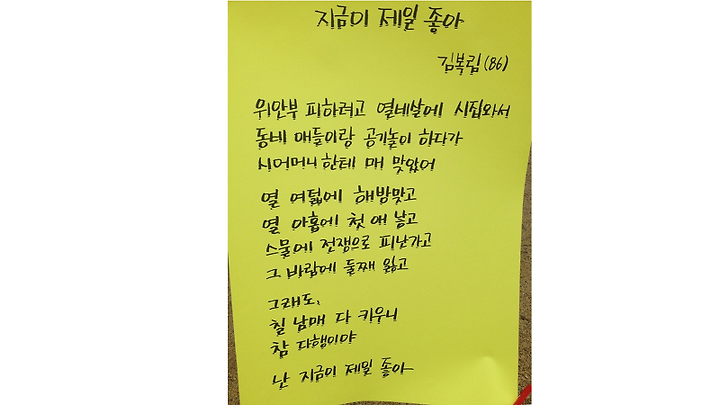 지금이 제일 좋아
김복림(86)
위안부 피하려고 열네살에 시집와서
동네 애들이랑 공기놀이 하다가
시어머니한테 매 맞았어
열 여덟에 해방맞고
열 아홉에 첫 애 낳고
스물에 전쟁으로 피난가고
그 바람에 둘째 잃고
그래도,
칠 남매 다 키우니
참 다행이야
난 지금이 제일 좋아